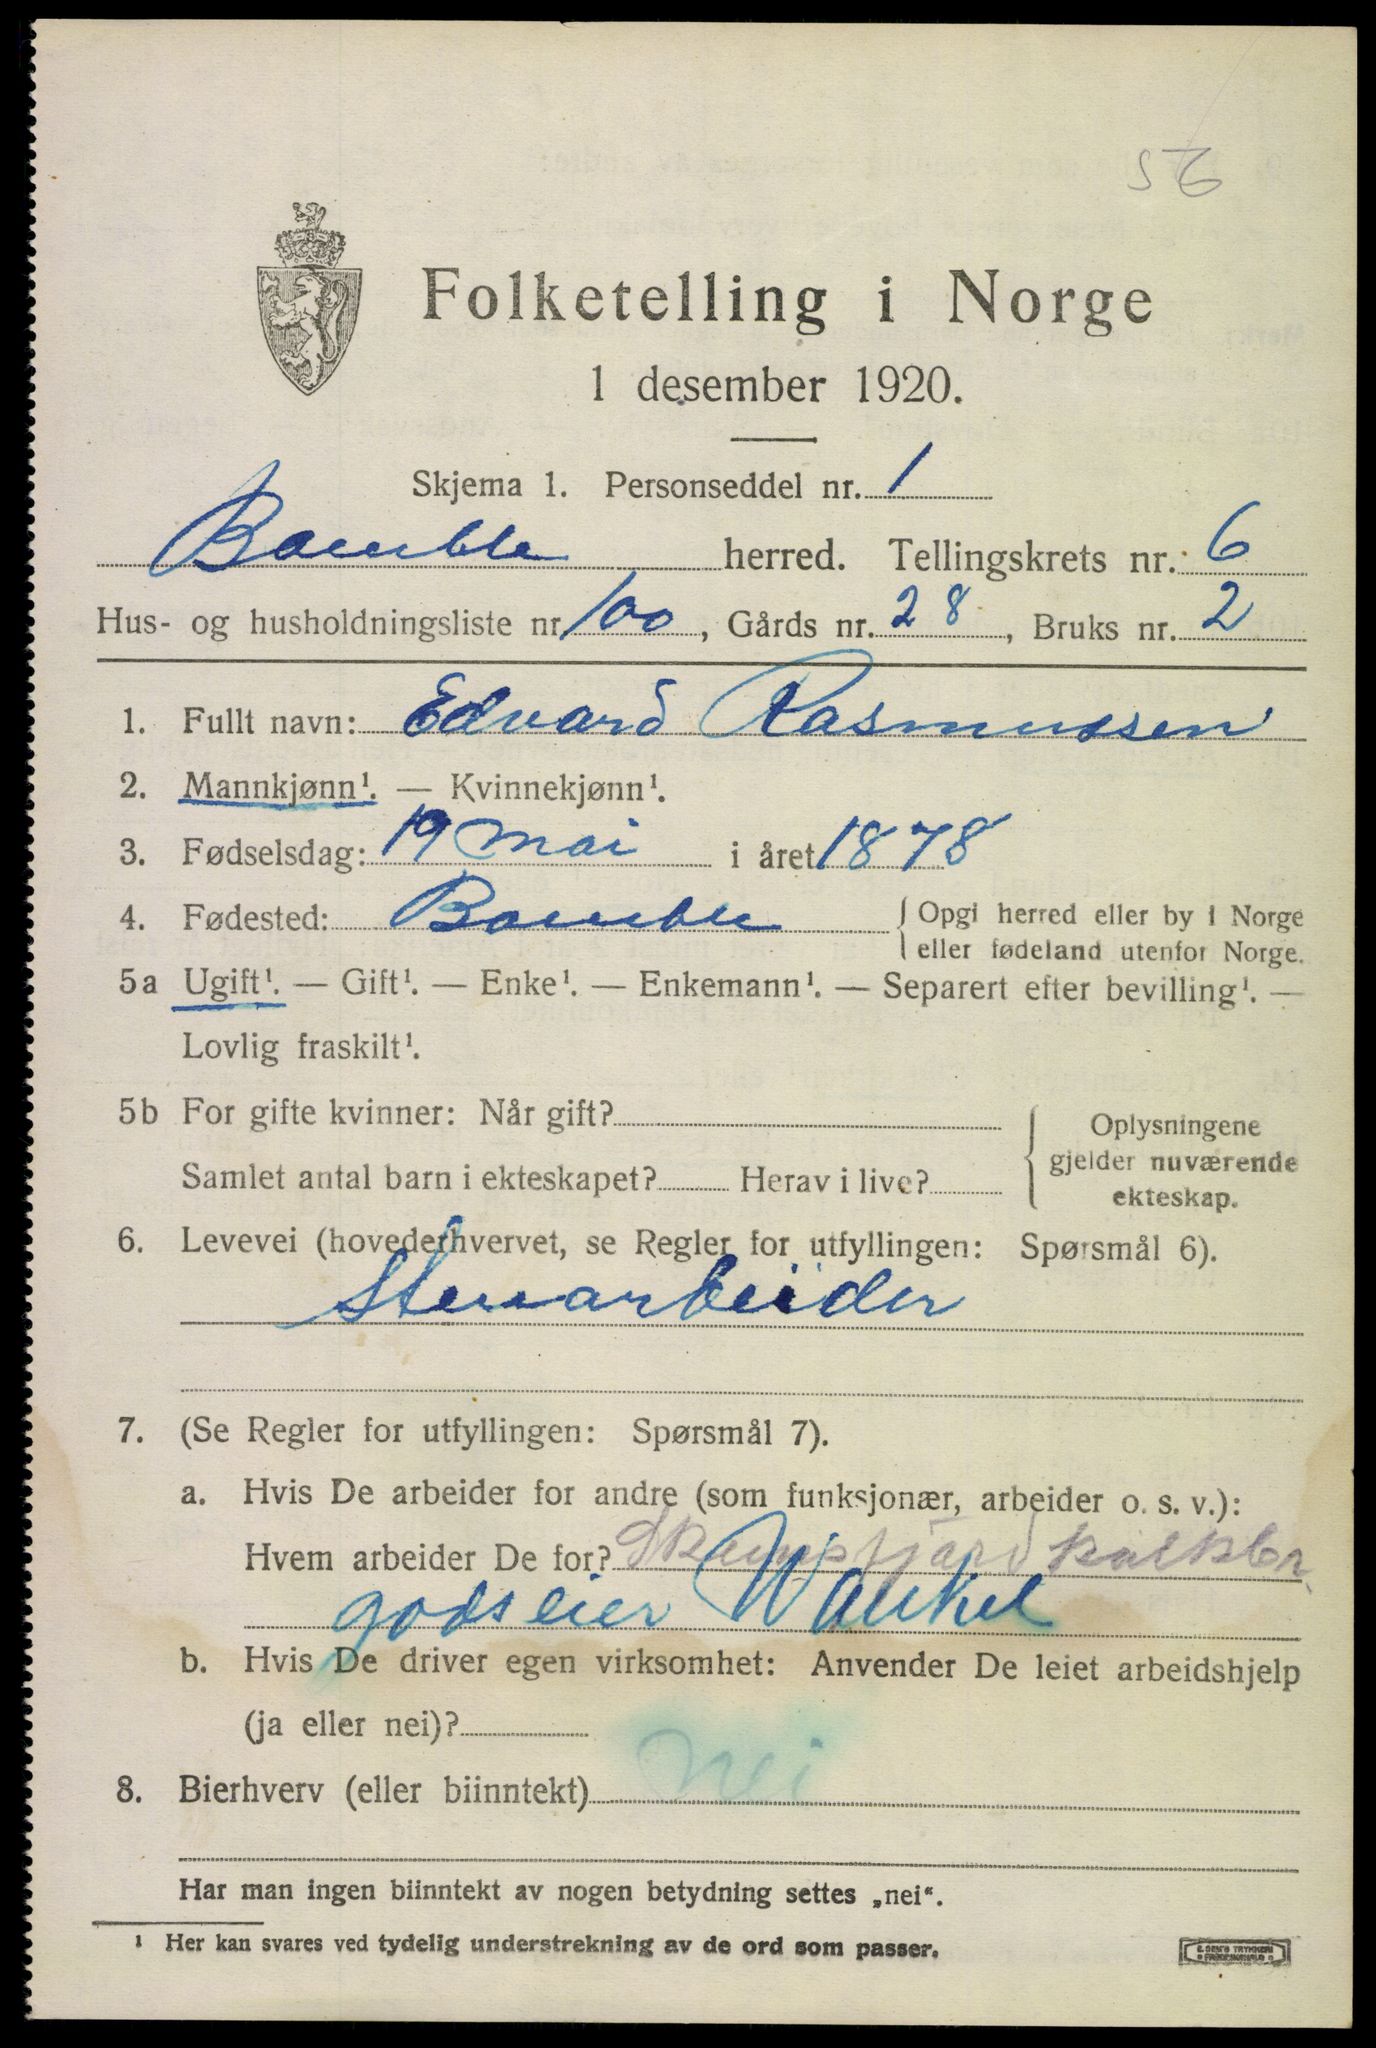 56
Folketelling i Norge
1 desember 1920.
Skjema 1. Personseddel nr. 1
Bamble herred. Tellingskrets nr. 6
Hus- og husholdningsliste nr. 100, Gårds nr. 28, Bruks nr. 2
1. Fullt navn: Edvard Rasmussen
2. Mannkjønn¹. — Kvinnekjønn¹.
3. Fødselsdag: 19 mai i året 1878
4. Fødested: Bamble { Opgi herred eller by i Norge
eller fødeland utenfor Norge.
5a Ugift¹. — Gift¹. — Enke¹. — Enkemann¹. — Separert efter bevilling¹. —
Lovlig fraskilt¹.
5b For gifte kvinner: Når gift?
Samlet antal barn i ekteskapet? Herav i live?
Oplysningene
gjelder nuværende
ekteskap.
6. Levevei (hovederhvervet, se Regler for utfyllingen: Spørsmål 6).
Stenarbeider
7. (Se Regler for utfyllingen: Spørsmål 7).
a. Hvis De arbeider for andre (som funksjonær, arbeider o. s. v.):
Hvem arbeider De for? kalkbr.
godseier
b. Hvis De driver egen virksomhet: Anvender De leiet arbeidshjelp
(ja eller nei)?
8. Bierhverv (eller biinntekt) nei
Har man ingen biinntekt av nogen betydning settes „nei“.
¹ Her kan svares ved tydelig understrekning av de ord som passer.